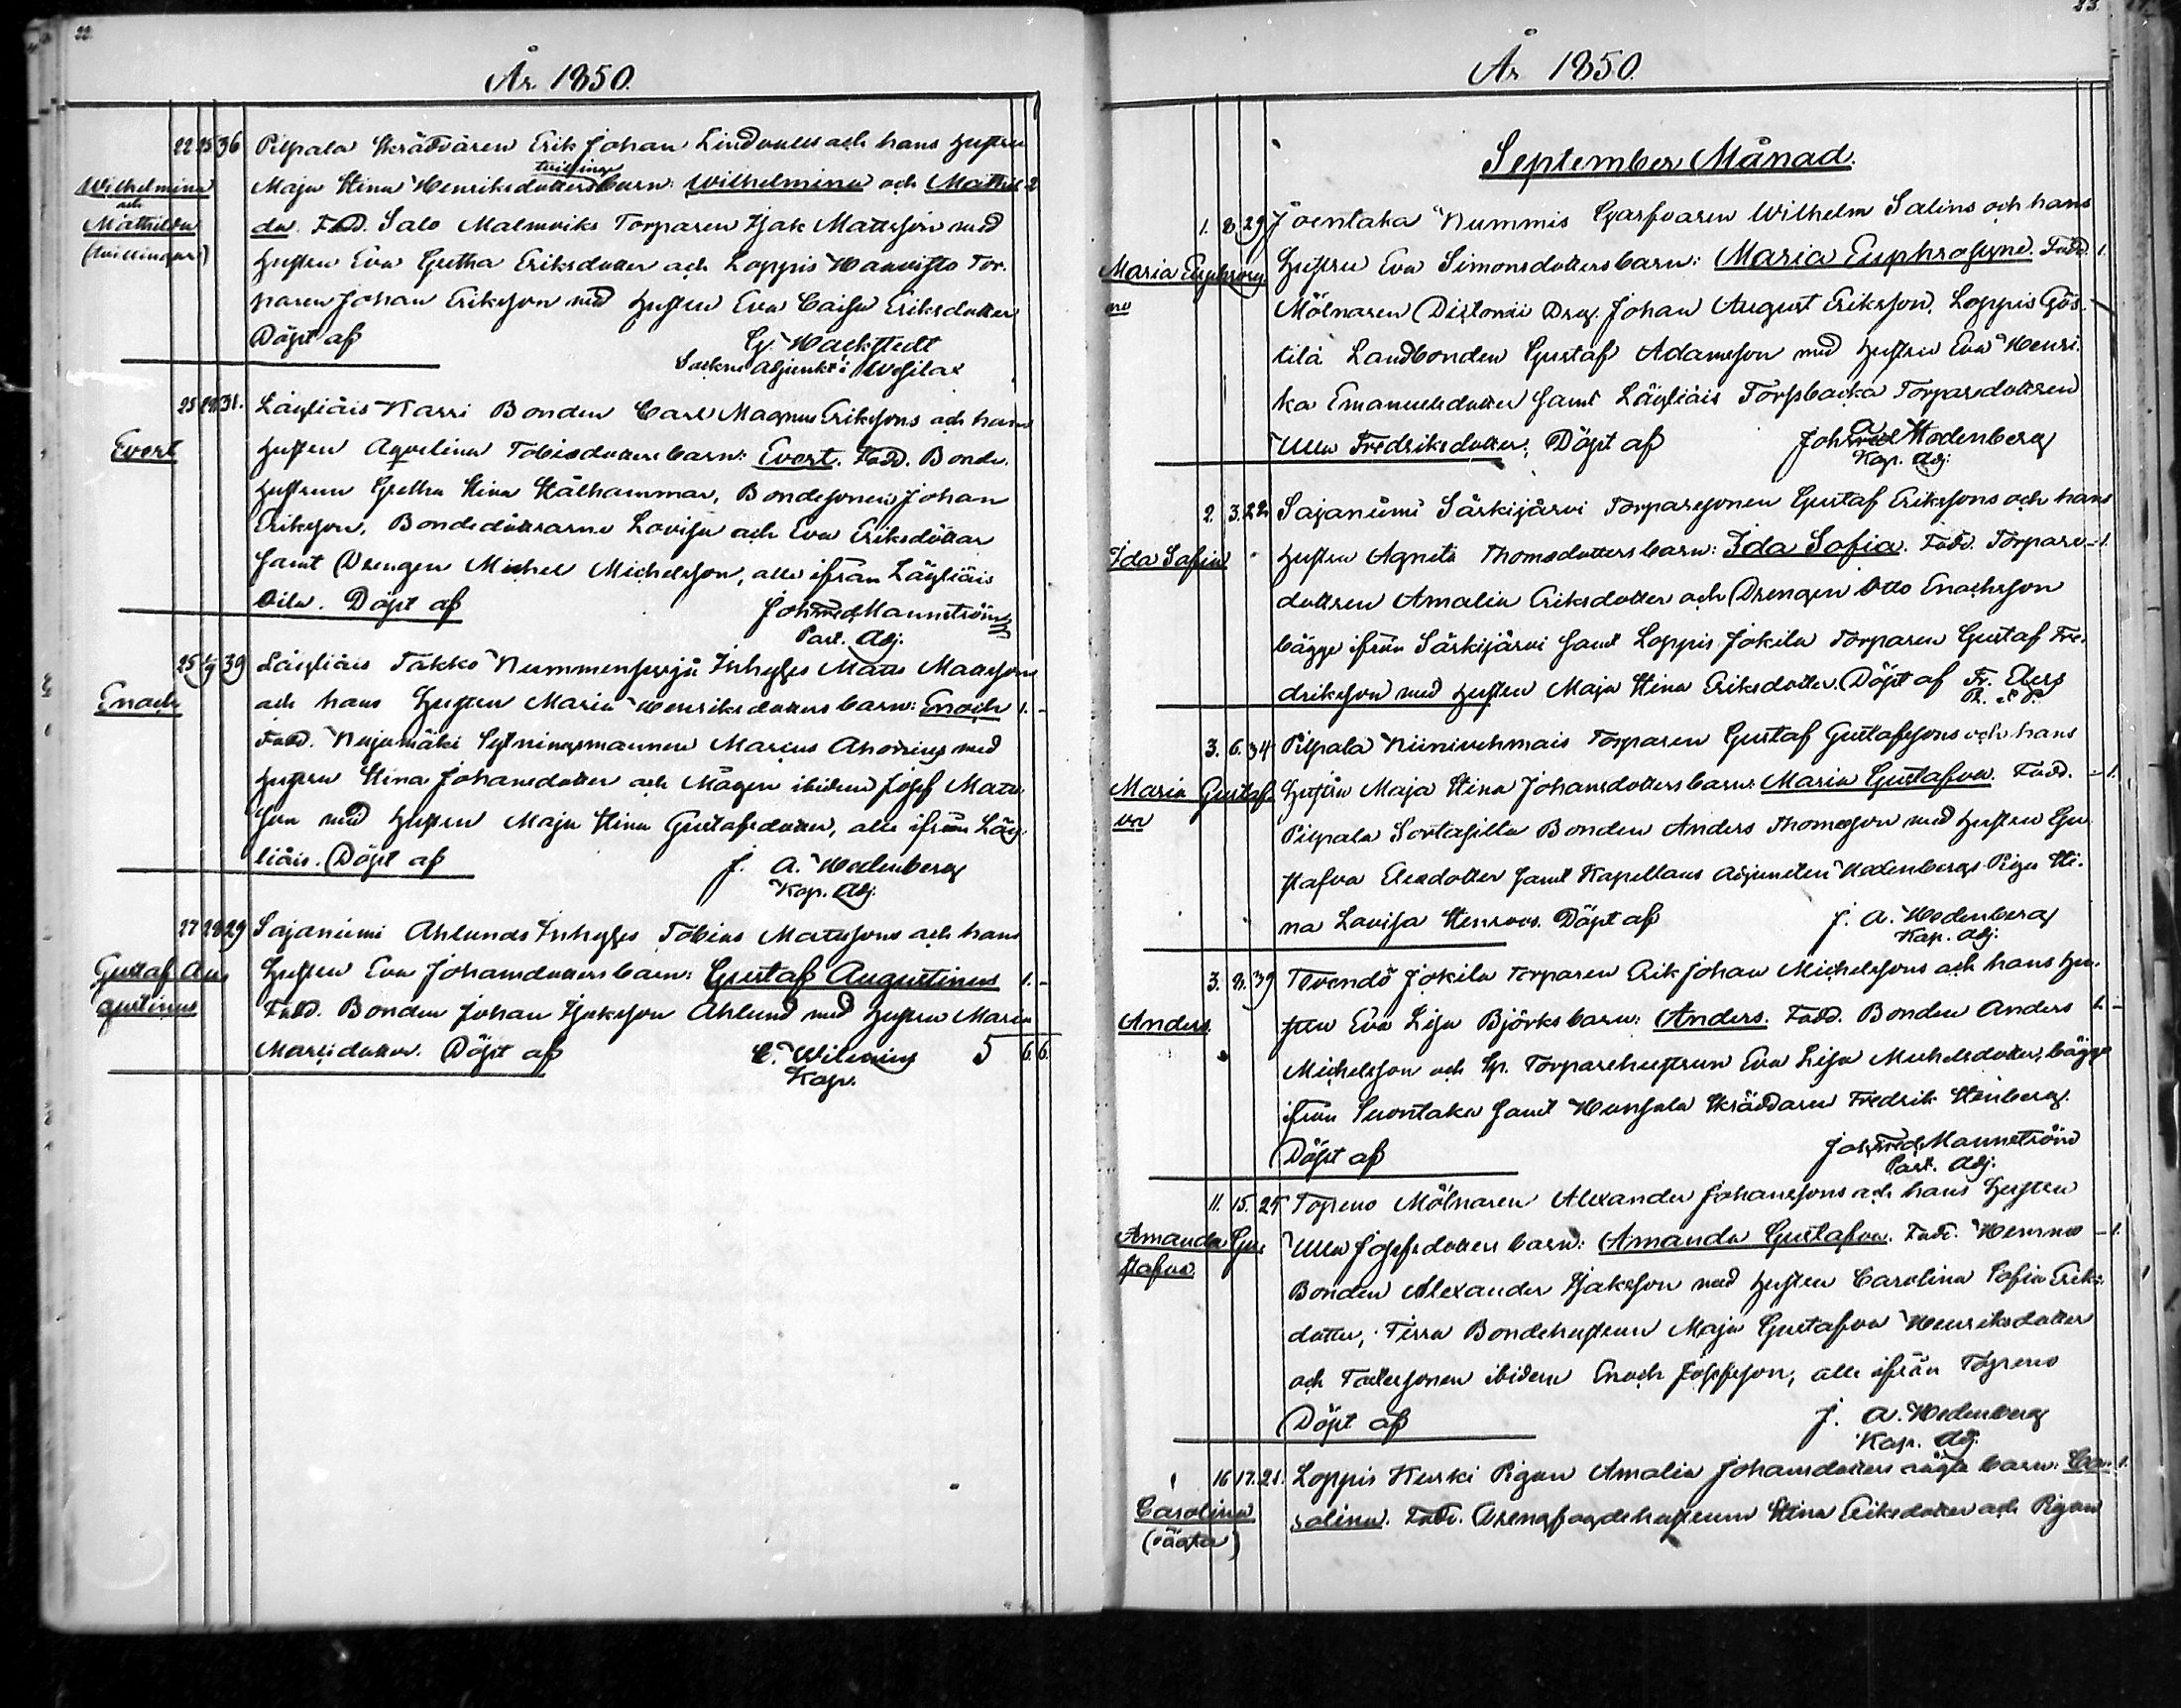 22.
År 1850.
22 25 36 Pilpala Skräddaren Erik Johan Lindvalls och hans hustru
tvillinge
Wilhelmina Maja Stina Henriksdotters barn: Wilhelmina och Mathil- 2
och
Mathilda da. Fadd. Salo Malmviks Torparen Isak Mattsson med
(tvillingar) hustru Eva Gretha Eriksdotter och Loppis Hauvisto Tor-
paren Johan Eriksson med hustru Eva Caisa Eriksdotter
Döpt af G. Wackstedt
Sockne Adjunkt i Wesilax
25 29 31. Läyliäis Karri Bonden Carl Magnus Erikssons och hans
Evert hustru Aqvelina Tobiasdotters barn: Evert. Fadd. Bonde-
hustrun Gretha Stina Stålhammar, Bondesonen Johan
Eriksson, Bondedöttrarne Lovisa och Eva Eriksdöttrar
samt Drengen Michel Michelsson, alla ifrån Läyliäis
Döpt af Joh. Fred. Mannström
Past. Adj.
25 39 Läyliäis Takko Nummenperjä Inhyses Matts Mattssons
Enoch och hans Hustru Maria Henriksdotters barn: Enoch 1. -
Fadd. Nujamäki Sytningsmannen Marcus med
hustru Stina Johansdotter och Mågen ibidem Josef Matts-
son med hustru Maja Stina Gustafsdotter, alla ifrån Läy-
liäis. Döpt af J. A. Hedenberg
Kap. Adj.
27 28 29 Sajaniemi Ahlunds Inhyses Tobias Mattssons och hans
Gustaf Au- Hustru Eva Johansdotters barn: Gustaf Augustinus 1. -
gustinus Fadd. Bonden Johan Isaksson Ahlund med hustru Maria
Marcidotter. Döpt af C. 5 6. 6.
Kap.
23.
År 1850.
September Månad.
1. 8. 29 Joentaka Nummis Garfvaren Wilhelm Salins och hans
Maria Euphrosy- Hustru Eva Simonsdotters barn: Maria Euphrosyne. Fadd. 1.
ne Mölnaren Drag. Johan August Eriksson, Loppis Gös-
tilä Landbonden Gustaf Adamsson med hustru Eva Henri-
ka Emanuelsdotter samt Läyliäis Torpsbacka Torparedottren
Ulla Fredriksdotter. Döpt af Joh. A. Hedenberg
Kap. Adj.
2. 3. 22. Sajaniemi Särkijärvi Torparesonen Gustaf Erikssons och hans
Ida Sofia hustru Agneta Thomasdotters barn: Ida Sofia. Fadd. Torpare- - 1.
dottren Amalia Eriksdotter och Drengen Otto Enochsson
bägge ifrån Särkijärvi samt Loppis Jokila Torparen Gustaf Fre-
driksson med hustru Maja Stina Eriksdotter. Döpt af Fr. Elers
P. L. P.
3. 6. 34 Pilpala Niinivehmais Torparen Gustaf Gustafssons och hans
Maria Gustaf- hustru Maja Stina Johansdotters barn: Maria Gustafva. Fadd. - 1.
va Pilpala Sortasilla Bonden Anders Thomasson med hustru Gu-
stafva Elsedotter samt Kapellans Adjuncten Hedenbergs Piga Sti-
na Lovisa Stenroos. Döpt af J. A. Hedenberg
Kap. Adj.
3. 8. 39 Tevendö Jokila Torparen Erik Johan Michelssons och hans hu-
Anders stru Eva Lisa Björks barn: Anders. Fadd. Bonden Anders 1. -
Michelsson och Sp. Torparehustrun Eva Lisa Michelsdotter, bägge
ifrån Suontaka samt Hunsala Skräddaren Fredrik Stenberg.
Döpt af Joh. Fred. Mannström
Past. Adj.
11. 15. 25 Topeno Mölnaren Alexander Johanssons och hans hustru
Amanda Gu- Ulla Josefsdotters barn: Amanda Gustafva. Fadd. - 1.
stafva Bonden Alexander Isaksson med hustru Carolina Sofia Eriks-
dotter, Bondehustrun Maja Gustafva Henriksdotter
och ibidem Enoch Josefsson, alla ifrån Topeno
Döpt af J. A. Hedenberg
Kap. Adj.
16 17. 21. Loppis Kurki Pigan Amalia Johansdotters oägta barn: Ca- 1.
Carolina rolina. Fadd. Drengfogdehustrun Stina Eriksdotter och Pigan
(oägta)